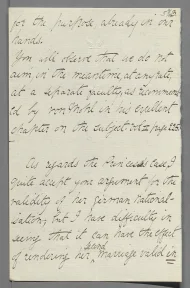 for the purpose already in our
hands.
You will observe that we do not
aim in the meantime, at any rate,
at a separate nullity, as recommend
ed by von Mohl in his excellent
chapter on the subject
As regards the Princess's case, I
quite accept your argument for the
validity of her German National-
isation, but I have difficulty in
seeing that it can have the effect
second
of rendering her marriage valid in